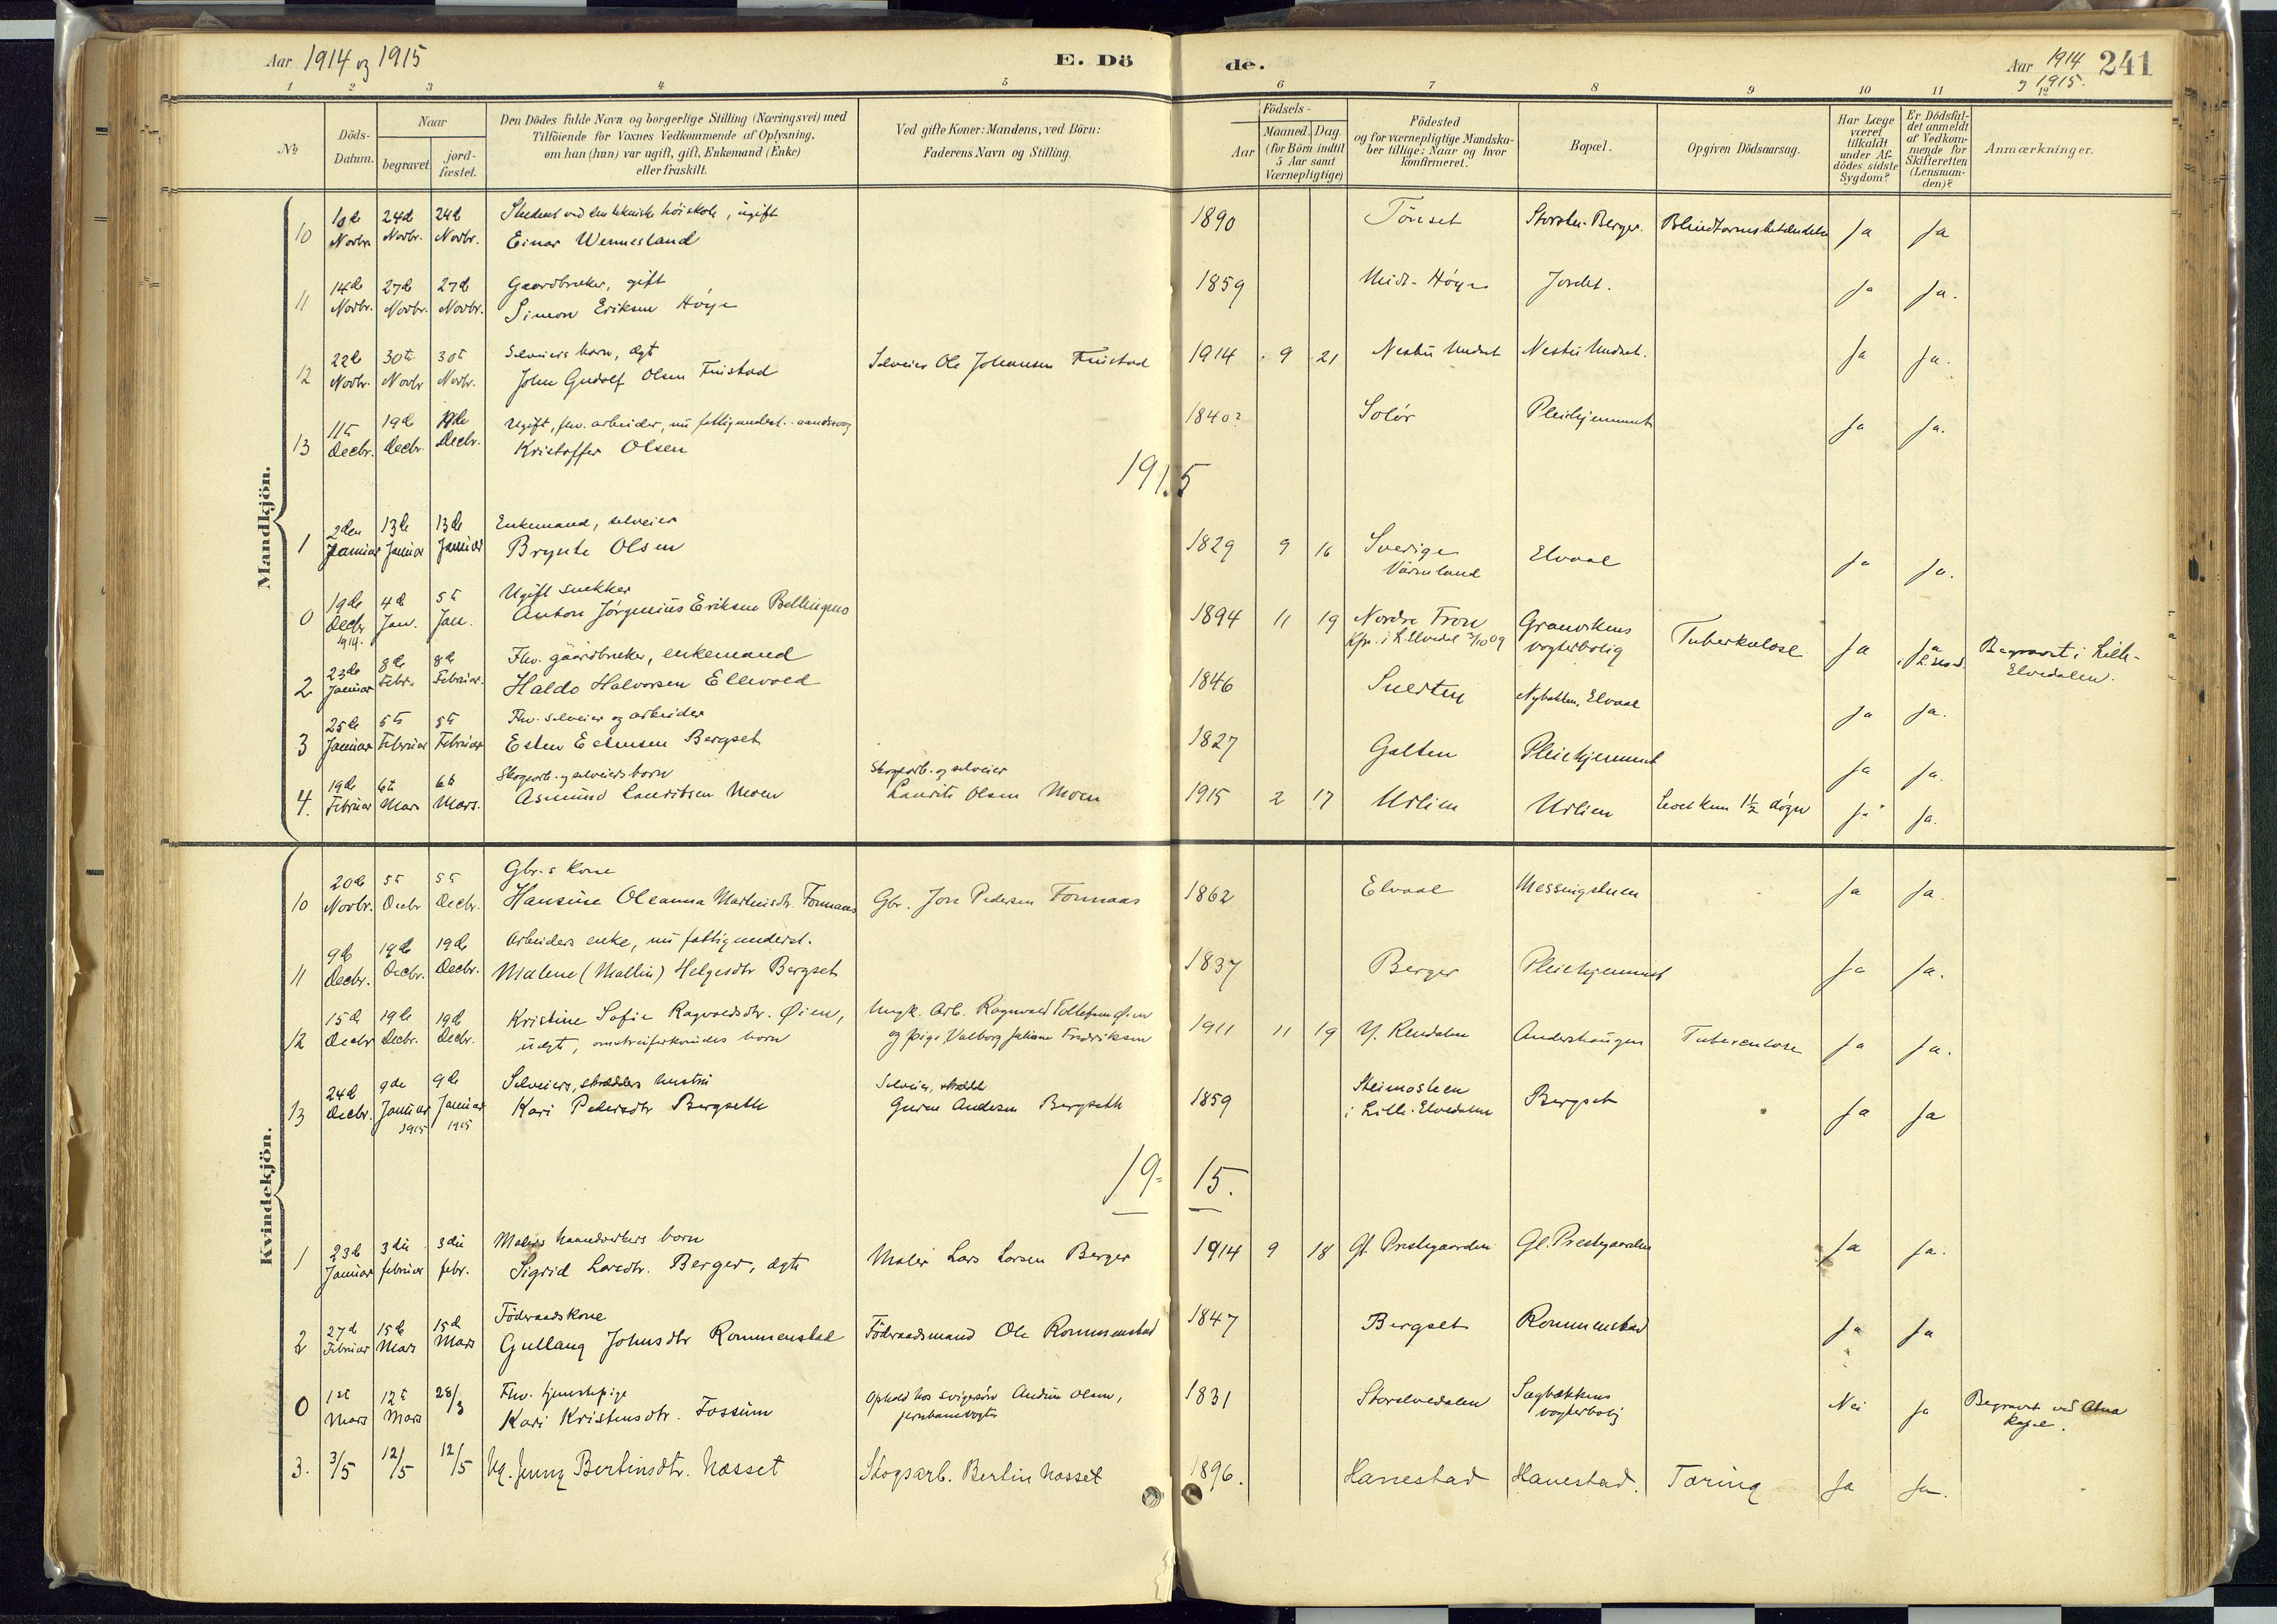 Aar 1914 og 1915
E. Dö
de.
Aar 1914
og 1915.
241
1 2 3 4 5 6 7 8 9 10 11 12
No
Döds-
Datum.
Naar
begravet
jord-
fæstet.
Den Dödes fulde Navn og borgerlige Stilling (Næringsvei) med
Tilföiende for Voxnes Vedkommende af Oplysning,
om han (hun) var ugift, gift, Enkemand (Enke)
eller fraskilt.
Ved gifte Koner: Mandens, ved Börn:
Faderens Navn og Stilling.
Födsels-
Aar
Maaned. Dag.
(for Börn indtil
5 Aar samt
Værnepligtige)
Födested
og for værnepligtige Mandska-
ber tillige: Naar og hvor
konfirmeret.
Bopæl.
Opgiven Dödsaarsag.
Har Læge
været
tilkaldt
under Af-
dödes sidste
Sygdom?
Er Dödsfal-
det anmeldt
af Vedkom-
mende for
Skifteretten
(Lensman-
den)?
Anmærkninger.
Mandkjön.
10 10de Novbr. 24de Novbr. 24de Novbr. Student ved den tekniske höiskole, ugift
Einar Wennesland 1890 Tönset Storstu-Berger. Blindtarmsbetændelse Ja Ja
11 14de Novbr. 27de Novbr. 27de Novbr. Gaardbruker, gift
Simon Eriksen Höye 1859 Midt-Höye Jordet. Ja Ja.
12 22de Novbr. 30te Novbr 30te Novbr. Selveiers barn, ægt
John Gudolf Olsen Finstad Selveier Ole Johansen Finstad 1914 9 21 Nestu Undset Nestu Undset. Ja Ja.
13 11te Decbr. 19de Decbr. 19de Decbr. Ugift, fhv. arbeider, nu fattigunderst.
Kristoffer Olsen 1840? Solör Pleiehjemmet Ja Ja.
1915
1 2den Januar 13de Januar 13de Januar Enkemand, selveier
Brynte Olsen 1829 9 16 Sverige
Värmland Elvaal Ja Ja.
0 19de Decbr 1914. 4de Jan. 5te Jan. Ugift snekker
Anton Jörginius Eriksen Bellingmo 1894 11 19 Nordre Fron
Kfr. i L. Elvedal 3/10 09 Granvikens
vogterbolig Tuberkulose Ja Ja Begravet i Lille-
Elvedalen.
2 23de Januar 8de Febr. 8de Februar. Fhv. gaardbruker, enkemand
Haldo Halvorsen Ellevold 1846 Nybakken, Elvaal Ja Ja.
3 25de Januar 5te Februar 5te Februar Fhv. selveier og arbeider
Esten Estensen Bergset 1827 Galten Pleiehjemmet Ja Ja.
4. 19de Februar 6te Mars 6te Mars. Skogarb. og selveiers barn
Asmund Lauritsen Moen Skogarb. og selveier
Laurits Olsen Moen 1915 2 17 Urlien Urlien Levet kun 1 1/2 dögn Ja Ja.
Kvindekjön.
10 20de Novbr. 5te Decbr 5te Decbr. Gbr.s kone
Hansine Oleanna Martinsdtr. Fonnaas Gbr. Jon Pedersen Fonnaas 1862 Elvaal Messingstuen Ja Ja.
11 9de Decbr. 19de Decbr. 19de Decbr. Arbeiders enke, nu fattigunderst.
Malene (Mallin) Helgesdtr Bergset 1837 Berger Pleiehjemmet Ja Ja.
12 15de Decbr 19de Decbr. 19de Decbr. Kristine Sofie Ragvaldsdtr. Øien,
uægt, omstreiferkvindes barn Ungk. Arb. Ragnvald Tollefsen Øien
og pige Valborg Juliane Fredriksen 1911 11 19 Y. Rendalen Andershaugen Tuberculose Ja Ja.
13 24de Decbr. 9de Januar 1915 9de Januar 1915 Selveiers, skrædders hustru
Kari Pedersdtr Bergseth Selveier, skrædder
Andersen Bergseth 1859 Steimostuen
i Lille-Elvedalen Bergset Ja Ja
19- 15.
1 23de Januar 3die februar 3die febr. Malers haandverkers barn
Sigrid Larsdtr. Berger, ægte Maler Lars Larsen Berger 1914 9 18 Gl. Prestegaarden Gl. Prestegaarden Ja Ja.
2 27de Februar 15de Mars 15de Mars Föderaadskone
Gullaug Johnsdtr Rommenstad Föderaadsmand Ole Rommenstad 1847 Bergset Rommenstad Ja Ja
0 1ste Mars 12te Mars 28/3 Fhv. tjenestepige
Kari Kristensdtr. Fossum Ophold hos svigersön Olsen,
jernbanevogter 1831 Storelvedalen Sagbækkens
vogterbolig Nei Ja Begravet ved Atna
Kapel.
3. 3/5 12/5 12/5 Ug. Jenny Bertinsdtr. Næsset Skogsarb. Bertin Næsset 1896. Hanestad Hanestad. Tæring Ja Ja.